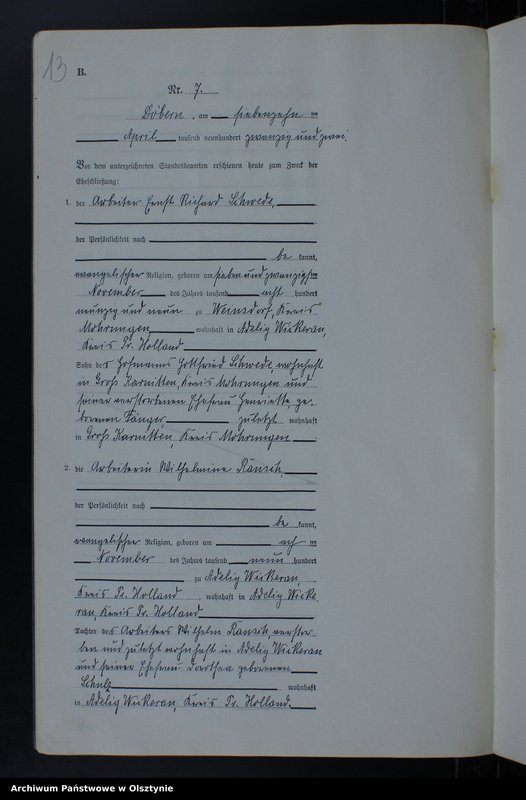 13
B.
Nr. 7.
Döbern, am siebenzehn ten
April tausend neunhundert zwanzig und zwei.
Vor dem unterzeichneten Standesbeamten erschienen heute zum Zweck der
Eheschließung:
1. der Arbeiter Ernst Richard Schwede,
der Persönlichkeit nach
be kannt,
evangelischer Religion, geboren am sieben und zwanzigsten
November des Jahres tausend acht hundert
neunzig und neun zu Weinsdorf, Kreis
Mohrungen wohnhaft in Adelig Wickerau,
Kreis Pr. Holland
Sohn des Hofmanns Gottfried Schwede, wohnhaft
in Groß Karnitten, Kreis Mohrungen und
seiner verstorbenen Ehefrau Henriette, ge-
borenen Fänger, zuletzt wohnhaft
in Groß Karnitten, Kreis Mohrungen ;
2. die Arbeiterin Wilhelmine Känsch,
der Persönlichkeit nach
be kannt,
evangelischer Religion, geboren am ach ten
November des Jahres tausend neun hundert
zu Adelig Wickerau,
Kreis Pr. Holland, wohnhaft in Adelig Wicke
rau, Kreis Pr. Holland
Tochter des Arbeiters Wilhelm Känsch, verstor-
ben und zuletzt wohnhaft in Adelig Wickerau
und seiner Ehefrau Dorothea geborenen
Schulz wohnhaft
in Adelig Wickerau, Kreis Pr. Holland.
Archiwum Państwowe w Olsztynie